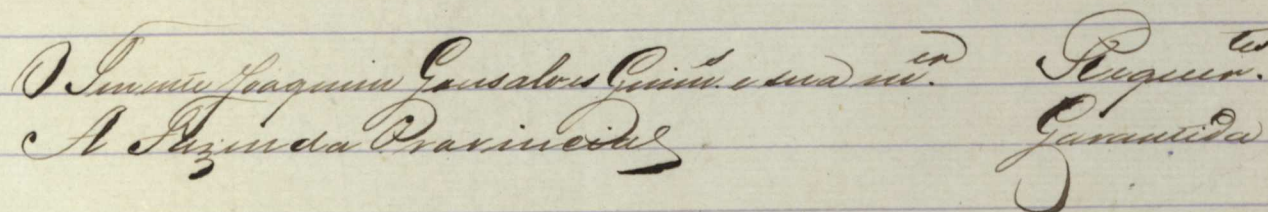 O Tenente Joaquim Gonsalves Guim.s e sua m.er Requer.tes
A Fazenda Provincial Garantida